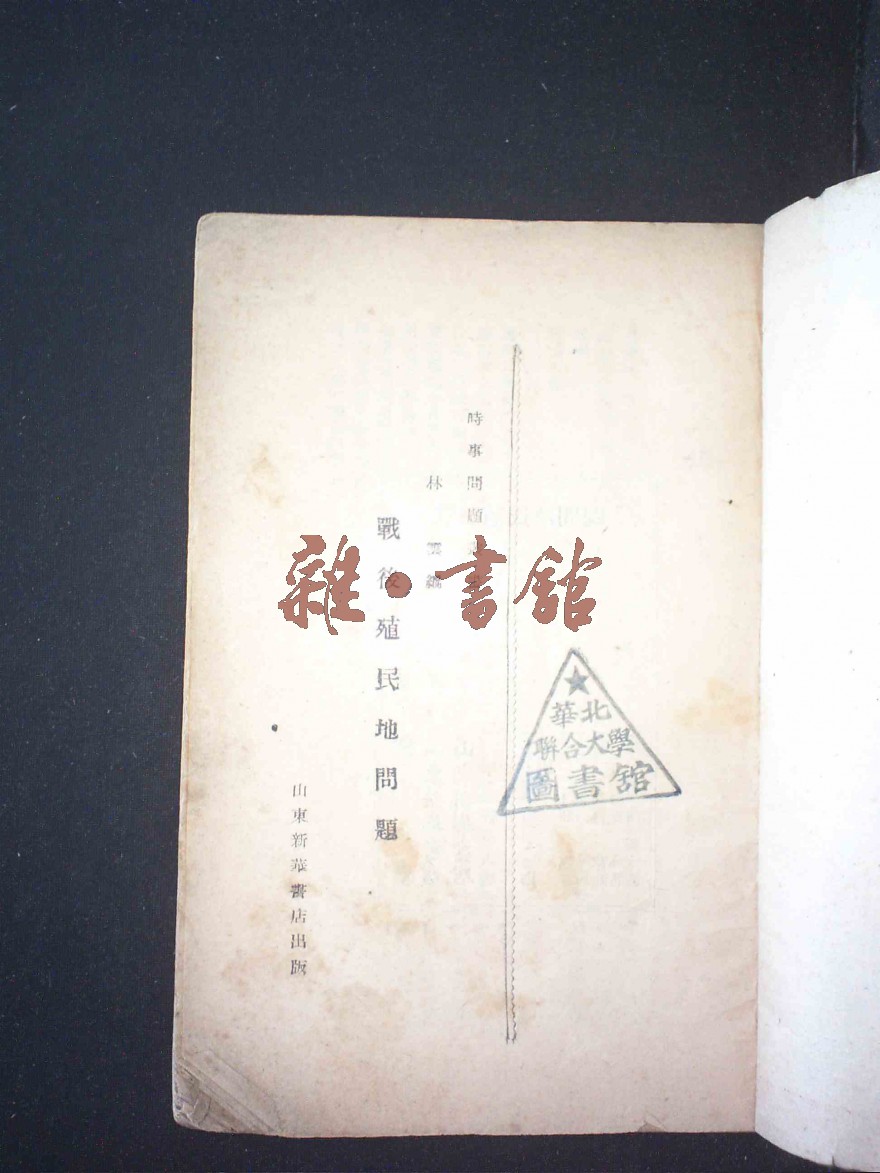 時事問題
林雲編
戰後殖民地問題
山東新華書店出版
華北
聯合大學
圖書館
雜·書館